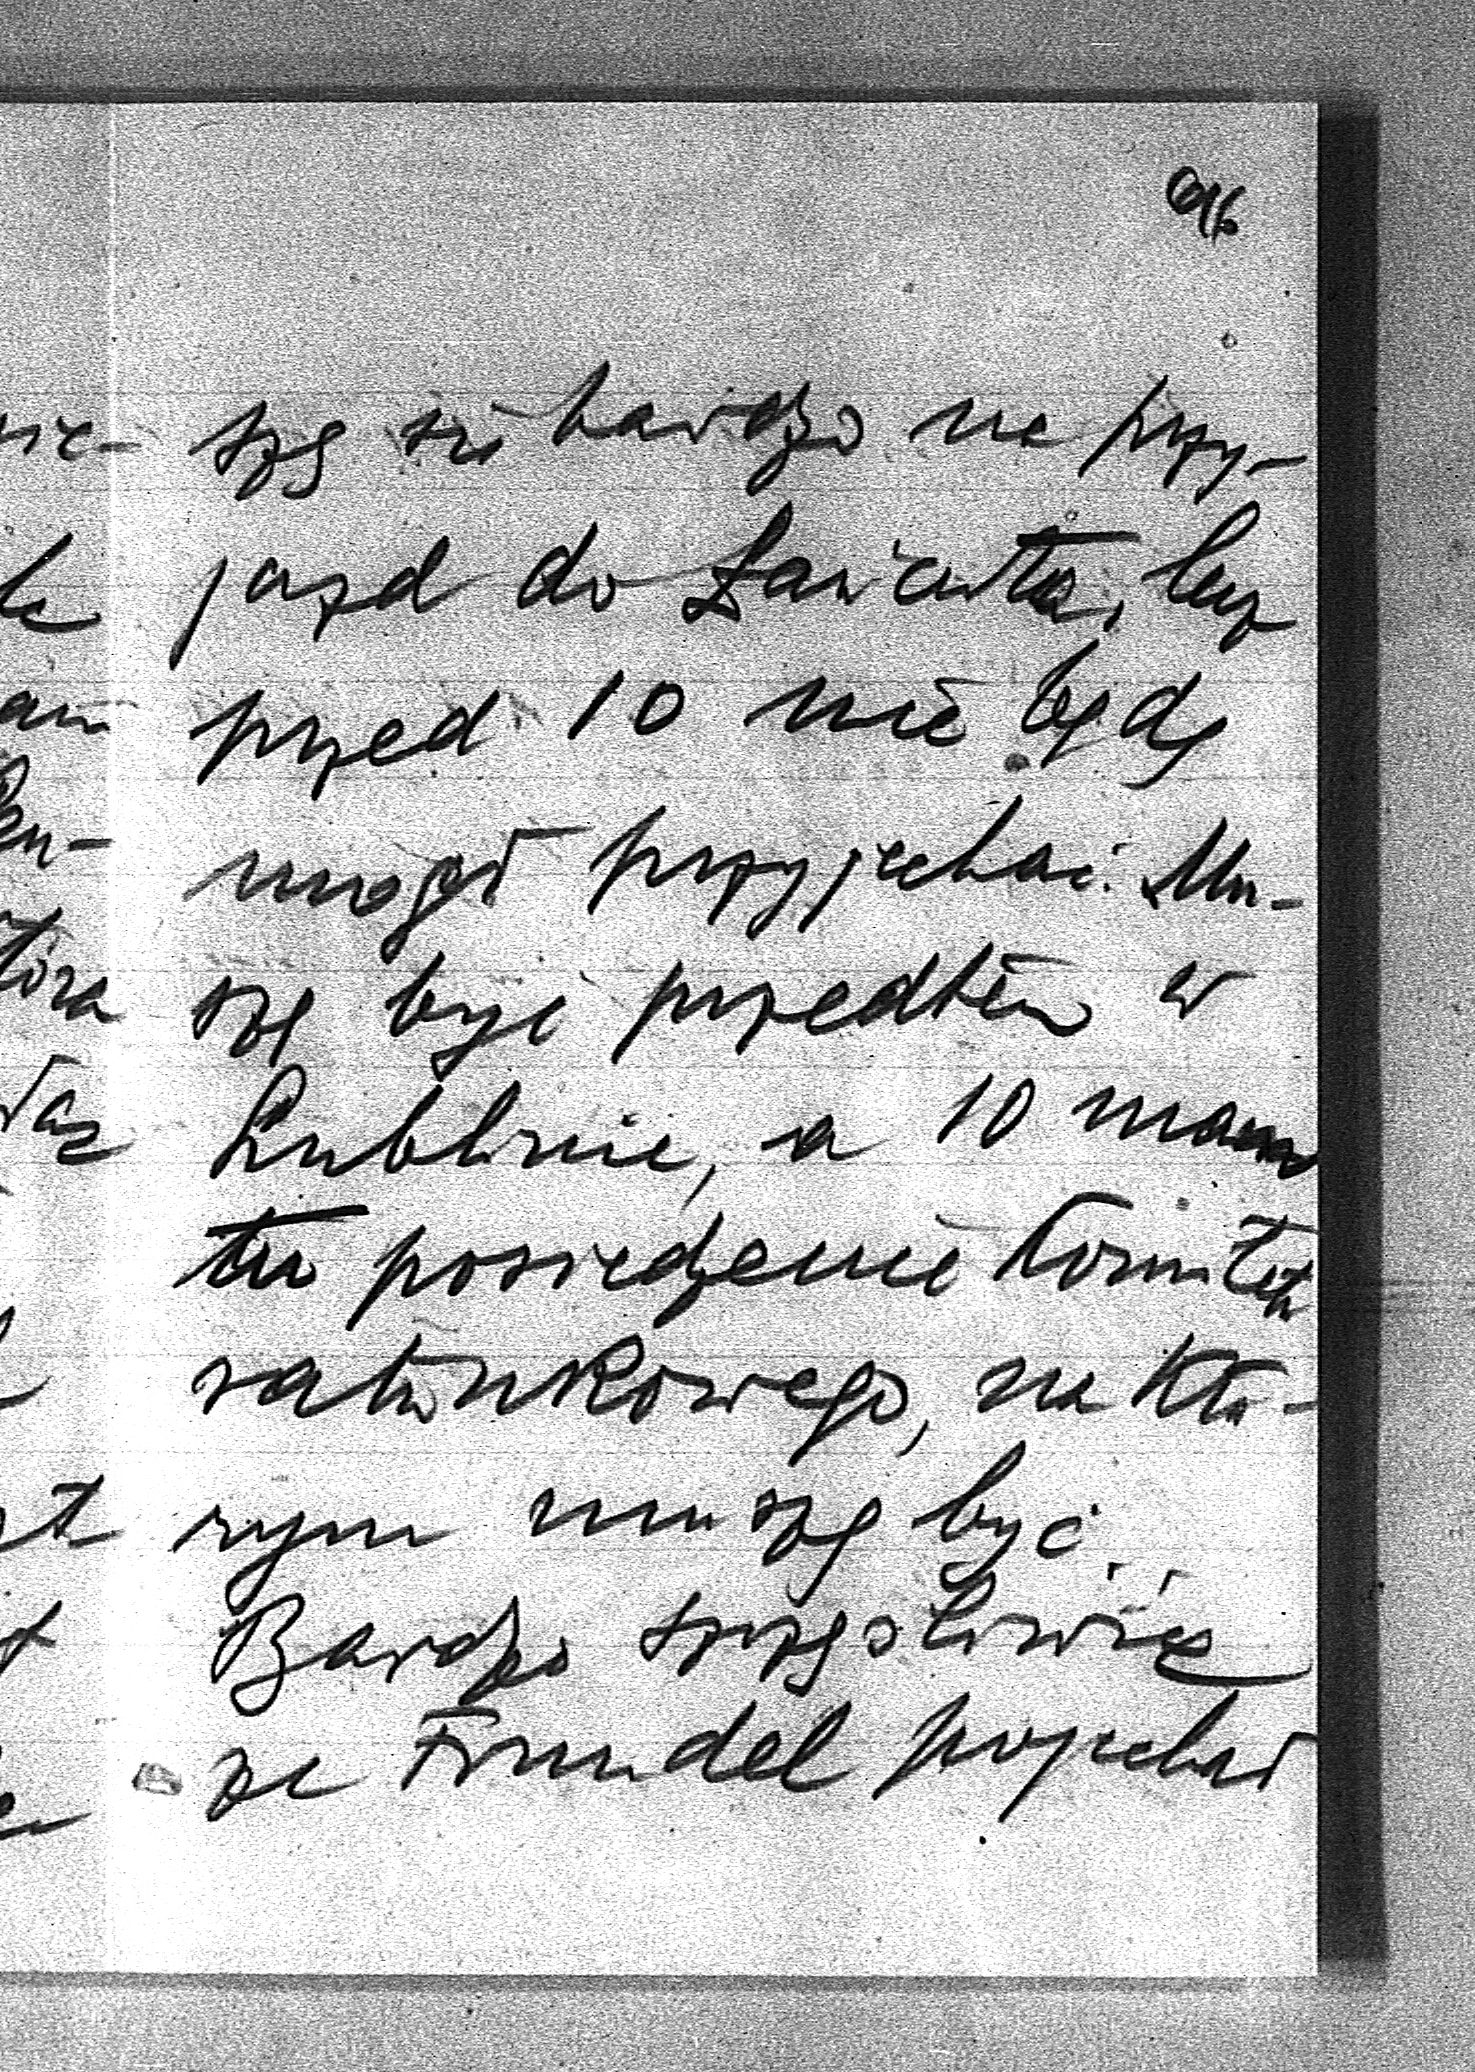 96
szę się bardzo na przy-
jazd do Łańcuta, lecz
przed 10 nie będę
mógł przyjechać. Mu-
szę być przedtem w
Lublinie, a 10 mam
tu posiedzenie Komitetu
ratunkowego, na któ-
rym muszę być.
Bardzo szczęśliwie
że pojechał